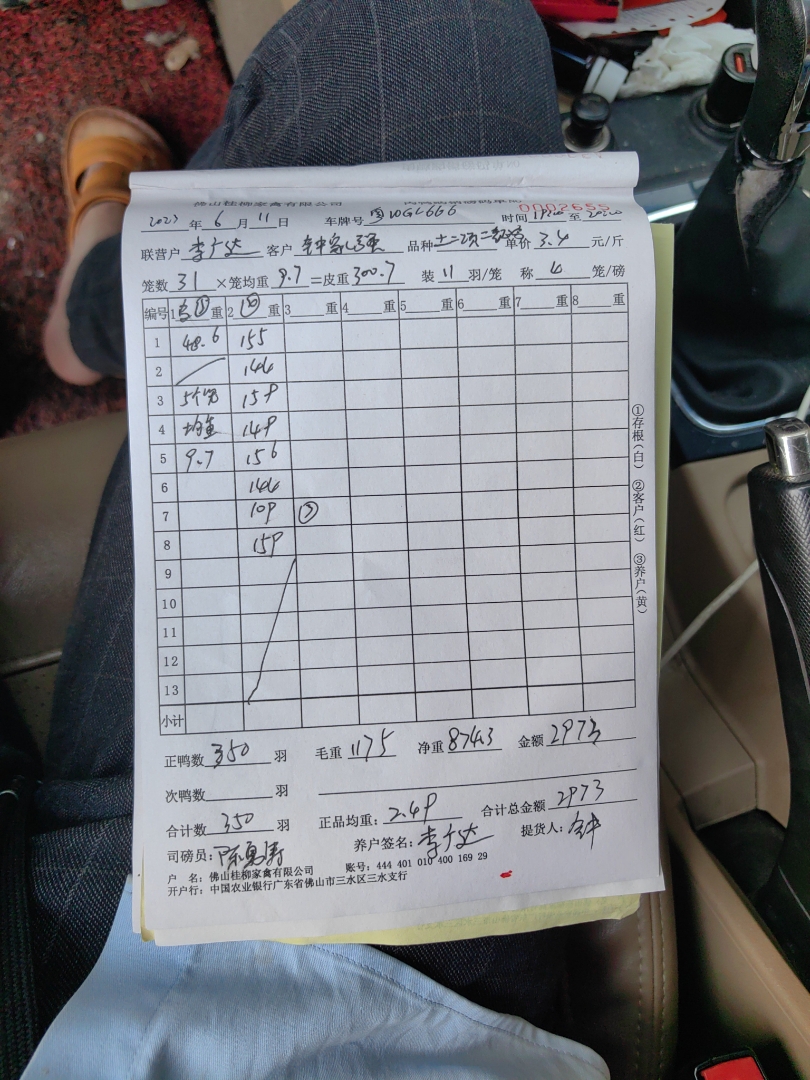 佛山桂柳家禽有限公司
0002655
2023 年 6 月 11 日 车牌号 时间 至
联营户 李广达 客户 品种 单价 3.4 元/斤
笼数 31 ×笼均重 9.7 =皮重 300.7 装 11 羽/笼 称 4 笼/磅
编号 1 重 2 重 3 重 4 重 5 重 6 重 7 重 8 重
1 48.6 155
2 144
3 5个笼 159
4 均重 149
5 9.7 156
6 144
7 109 ③
8 159
9
10
11
12
13
小计
①存根(白) ②客户(红) ③养户(黄)
正鸭数 350 羽 毛重 1175 净重 874.3 金额 2973
次鸭数 羽
合计数 350 羽 正品均重: 2.49 合计总金额 2973
司磅员: 养户签名: 李广达 提货人:
户 名: 佛山桂柳家禽有限公司 账号: 444 401 010 400 169 29
开户行: 中国农业银行广东省佛山市三水区三水支行